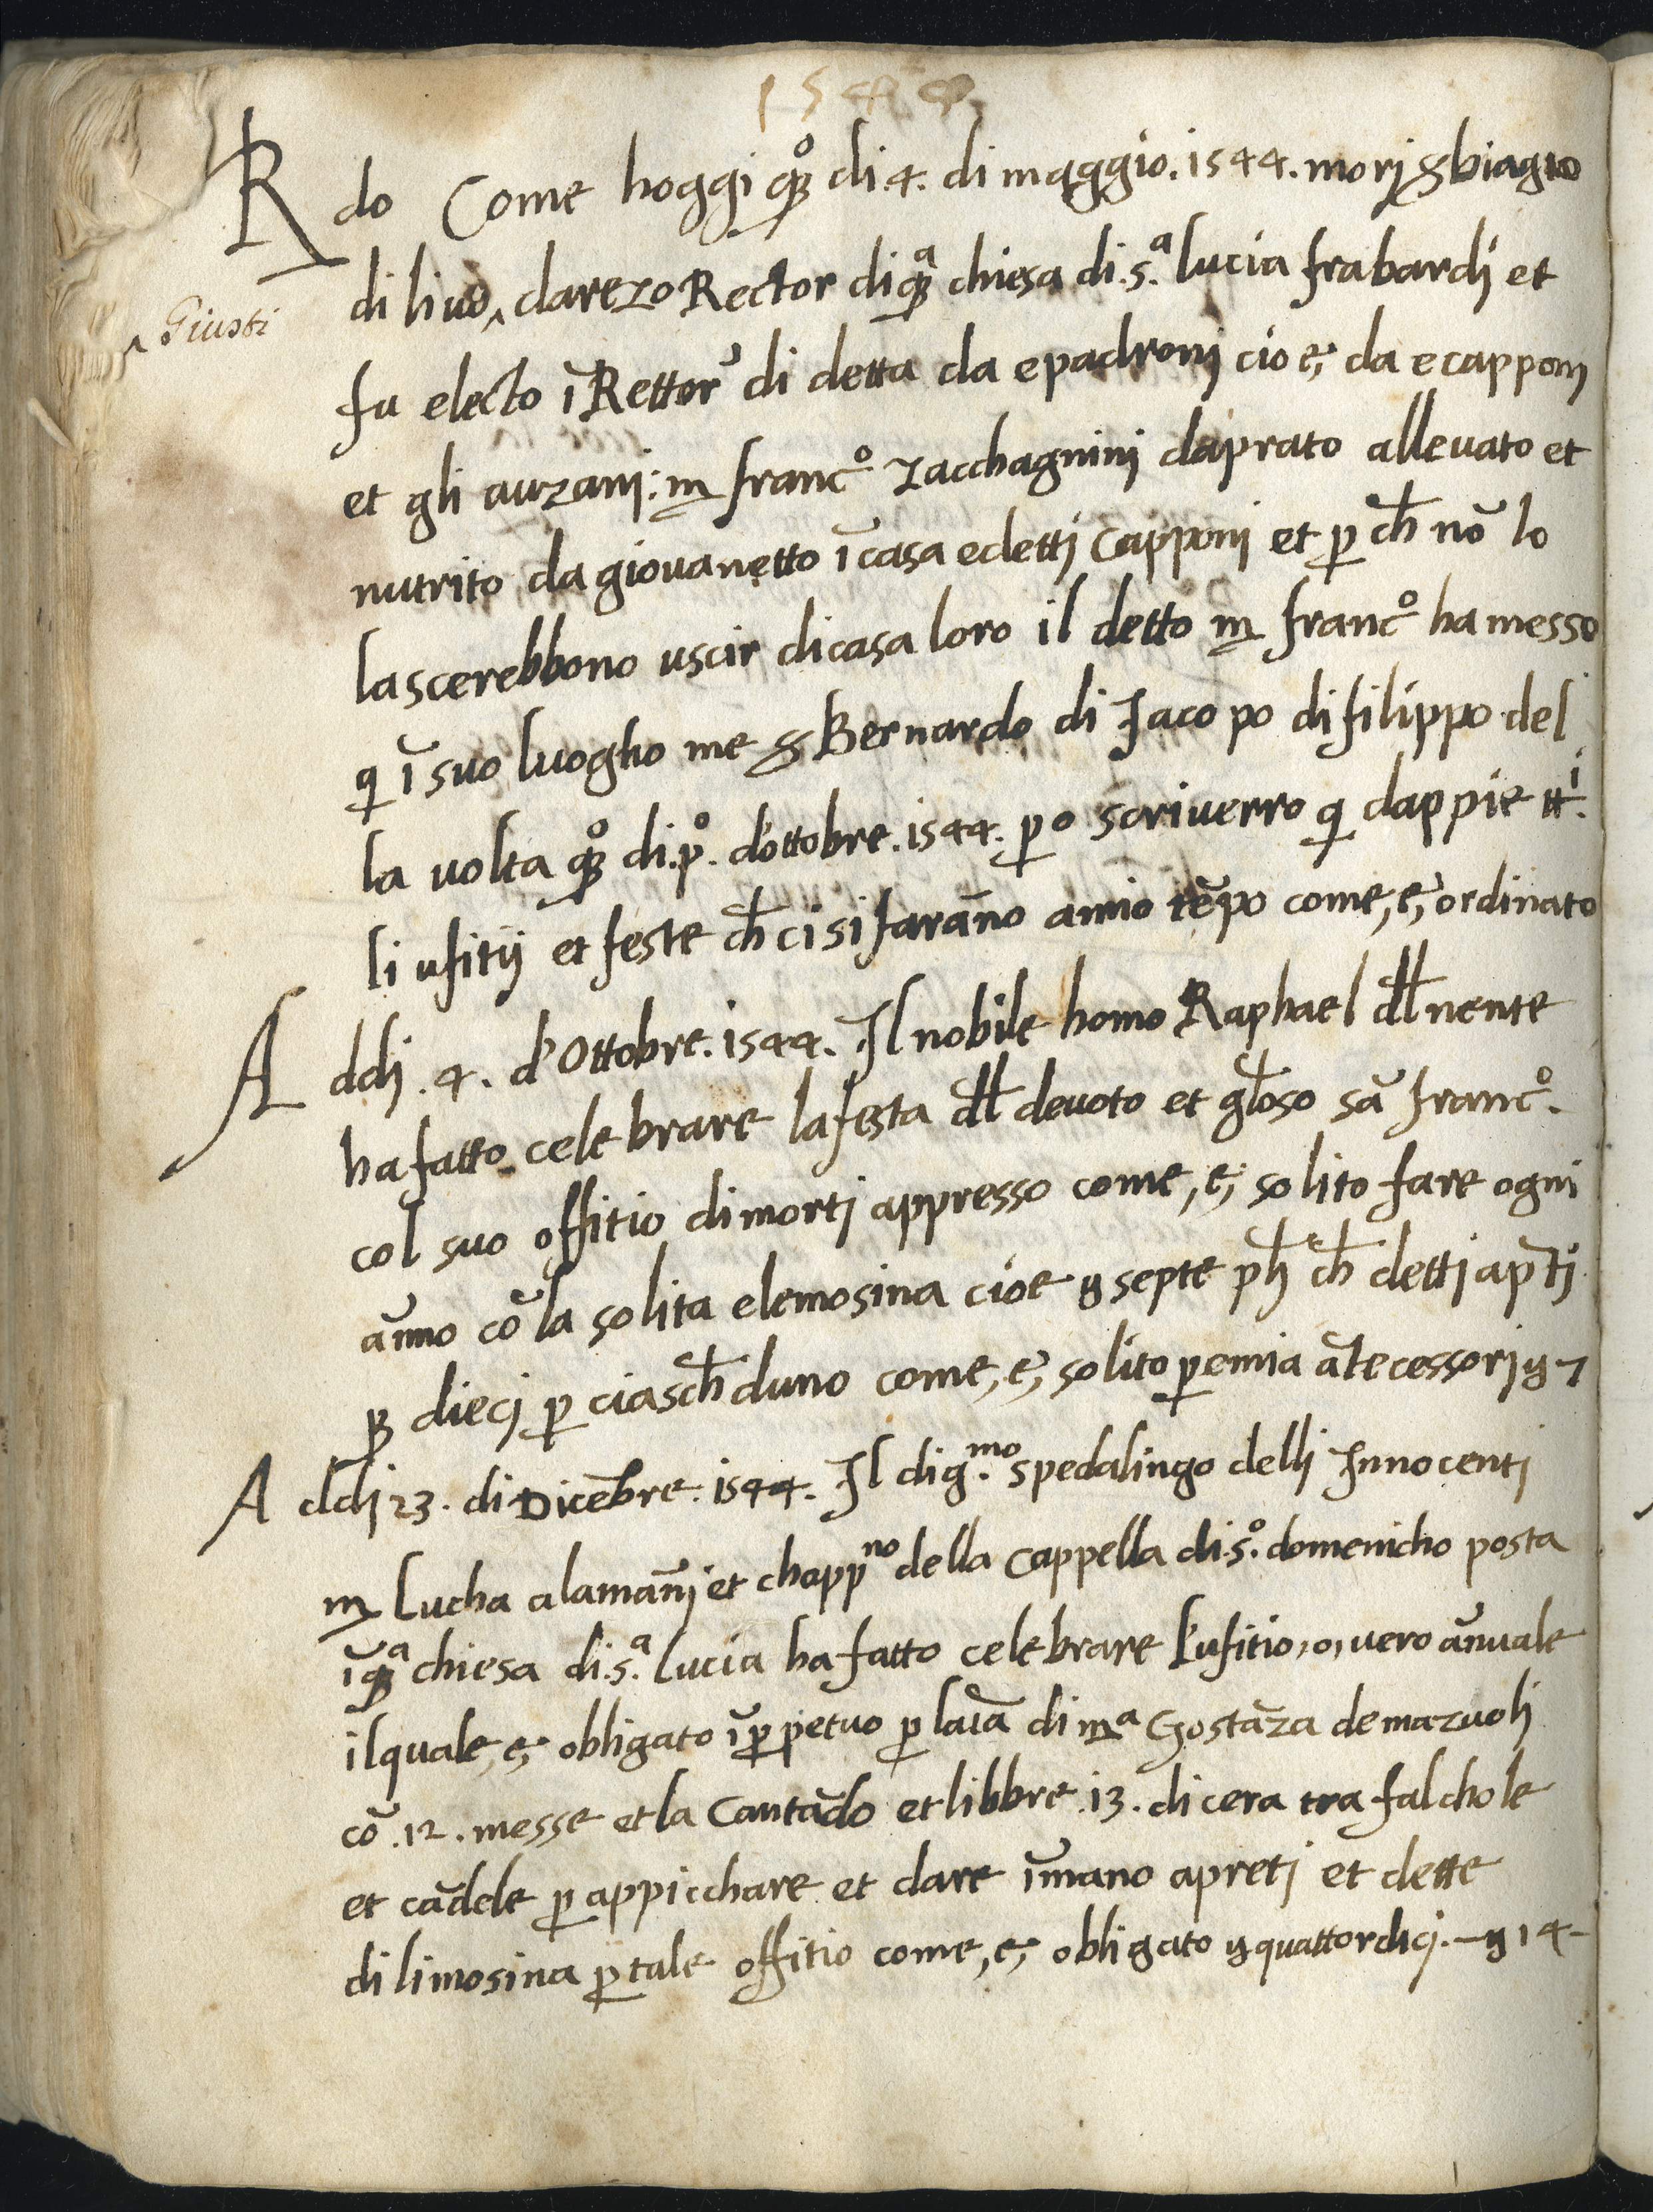 1544
Rdo Come hoggi qsto di 4. di maggio. 1544. morj s biagio
di livo ^ darezo Rector di qsta chiesa di .s.a lucia fra bardj et
^ Giusti
fu electo ī Rettor̃ di detta da e padronj cio e, da e capponj
et gli auzanj: m franc.o Zacchagninj da prato allevato et
nutrito da giovanetto ī casa e detti Capponj et p ch nō lo
lascerebbono uscir di casa loro il detto m franc.o ha messo
q ī suo luogho me s Bernardo di Jacopo di filippo del
la volta qsto di .p.o d'ottobre. 1544. po scriverro q dappie tti.
li ufitij et feste ch ci si farāno a mio tēpo come, e, ordinato
Addj .4. d'Ottobre. 1544. Il nobile homo Raphael dl nente
ha fatto celebrare la festa dl devoto et gloso sā franc.o.
col suo offitio di mortj appresso come, e, solito fare ogni
āno cō la solita elemosina cioe ℔ septe ph ch dettj a ptj
ps diecj p ciaschduno come, e, solito p e mia ātecessorj ℔ 7
Addj 23. di Dicēbre. 1544. Il dig.mo spedalingo delli Innocentj
m Lucha alamānj et chappno della Cappella di .s.o domenicho posta
ī qsta chiesa di .s.a Lucia ha fatto celebrare l'ufitio, o, vero ānuale
il quale, e, obligato ī ppetuo p laīa di m.a Gostāza de mazuolj
cō .12. messe et la Cantādo et libbre .13. di cera tra falchole
et cādele p appicchare et dare ī mano a pretj et dette
di limosina p tale offitio come, e, obligato ℔ quattordicj. — ℔ 14 -